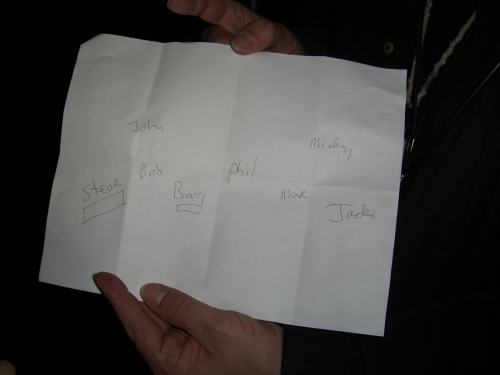 John
Mickey
Bob
Phil
Steve
Barry
Mark
Jackie